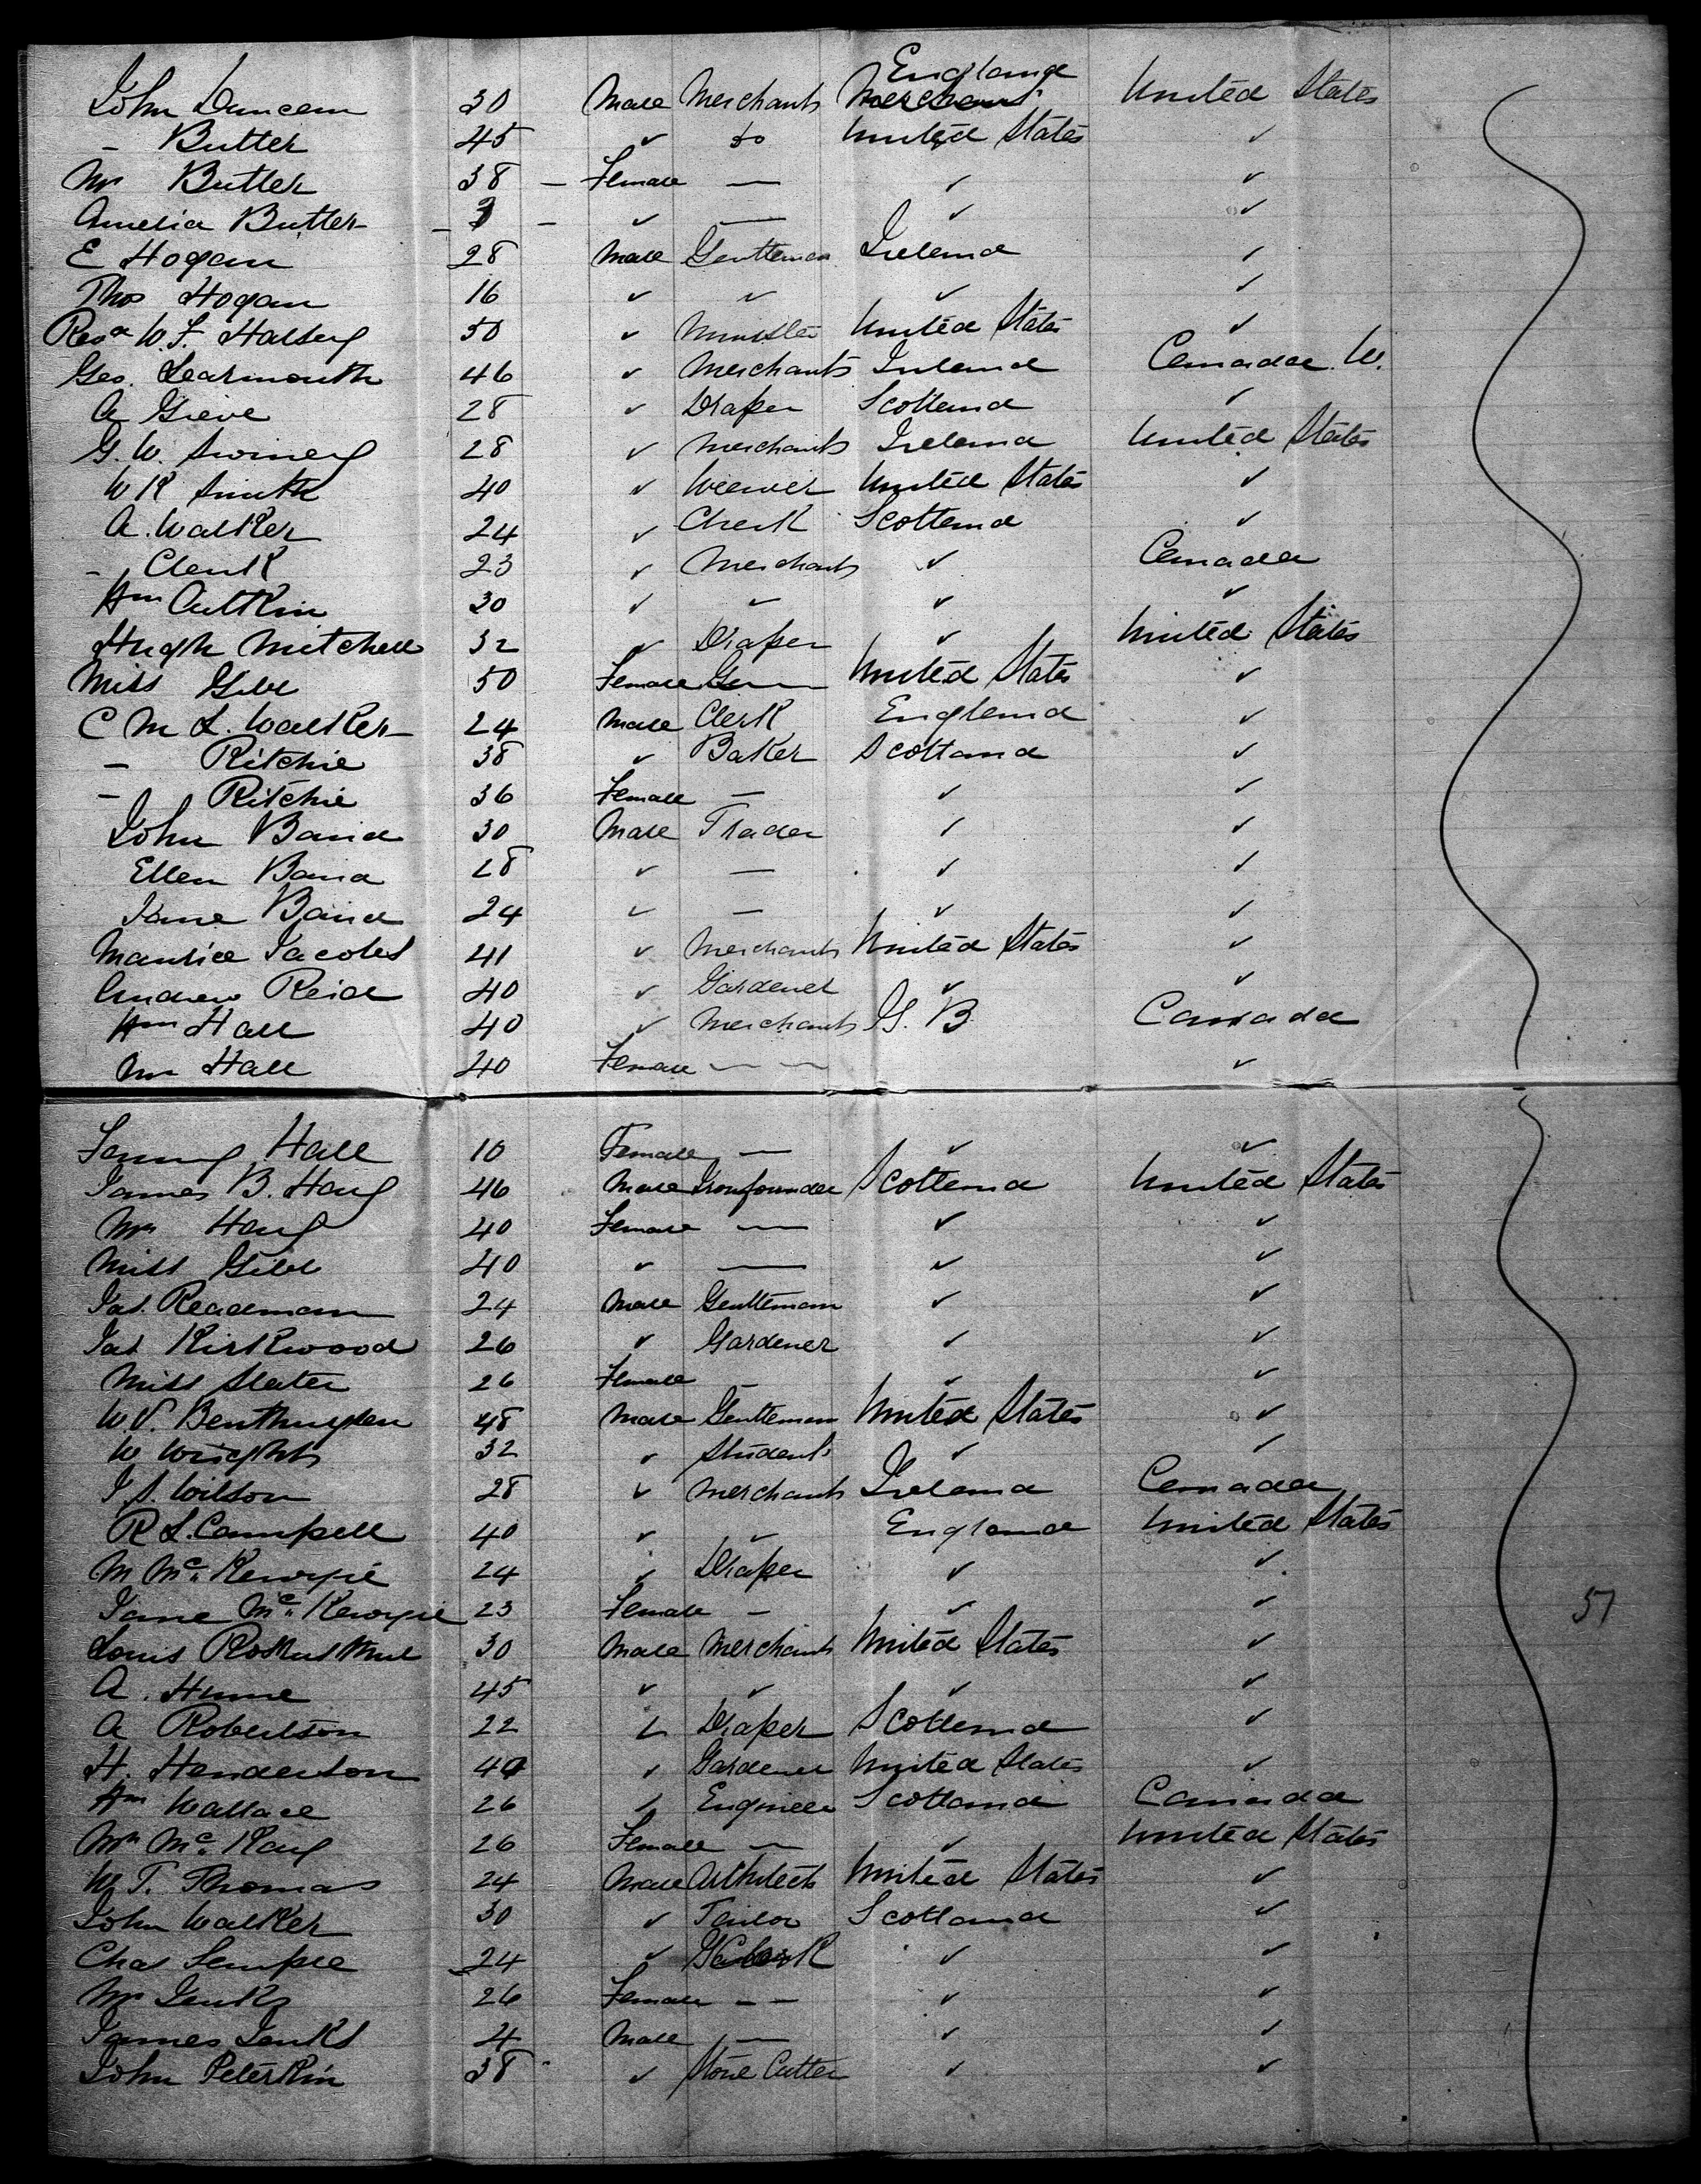 John Duncan 30 Male Merchant England United States
- Butler 45 ✓ Do United States ✓
Mrs Butler 38 - Female — ✓ ✓
Amelia Butler - 3 - ✓ — ✓ ✓
E Hogan 28 Male Gentleman Ireland ✓
Thos Hogan 16 ✓ ✓ ✓ ✓
Revd W. F. Halsey 50 ✓ Minister United States ✓
Geo. Learmonth 46 ✓ Merchant Ireland Canada W.
A Grieve 28 ✓ Draper Scotland ✓
G. W. Swiney 28 ✓ Merchant Ireland United States
W R Smith 40 ✓ Weaver United States ✓
A. Walker 24 ✓ Clerk Scotland ✓
- Clerk 23 ✓ Merchant ✓ Canada
Wm 30 ✓ ✓ ✓ ✓
Hugh Mitchell 32 ✓ Draper ✓ United States
Miss Gibb 50 Female — United States ✓
C M L. Walker 24 Male Clerk England ✓
- Ritchie 38 ✓ Baker Scotland ✓
- Ritchie 36 Female — ✓ ✓
John Baird 30 Male Trader ✓ ✓
Ellen Baird 28 ✓ — ✓ ✓
Jane Baird 24 ✓ — ✓ ✓
Maurice Jacobs 41 ✓ Merchant United States ✓
Andrew Reid 40 ✓ Gardener ✓ ✓
Wm Hall 40 ✓ Merchant G. B. Canada
Mrs Hall 40 Female — — ✓
Hall 10 Female — ✓ ✓
James B. Hay 46 Male Ironfounder Scotland United States
Mrs Hay 40 Female — ✓ ✓
Miss Gibb 40 ✓ — ✓ ✓
Jas. Readman 24 Male Gentleman ✓ ✓
Jas Kirkwood 26 ✓ Gardener ✓ ✓
Miss Slater 26 Female ✓ ✓
W. V. Benthuysen 48 Male Gentleman United States ✓
W Wright 32 ✓ Student ✓ ✓
J. S. Wilson 28 ✓ Merchant Ireland Canada
R L. Campell 40 ✓ ✓ England United States
M Mc Kenzie 24 ✓ Draper ✓ ✓
Jane Mc Kenzie 23 Female - ✓ ✓
51
Louis 30 Male Merchant United States ✓
A. Hume 45 ✓ ✓ ✓ ✓
A Robertson 22 ✓ Draper Scotland ✓
H. Henderson 40 ✓ Gardener United States ✓
Wm Wallace 26 ✓ Engineer Scotland Canada
Mrs Mc Kay 26 Female — ✓ United States
W. T. Thomas 24 Male Architect United States ✓
John Walker 30 ✓ Tailor Scotland ✓
Chas Semple 24 ✓ Clerk ✓ ✓
Mrs Jenks 26 Female — — ✓ ✓
James Jenks 4 Male — ✓ ✓
John Peterkin 38 ✓ Stone Cutter ✓ ✓